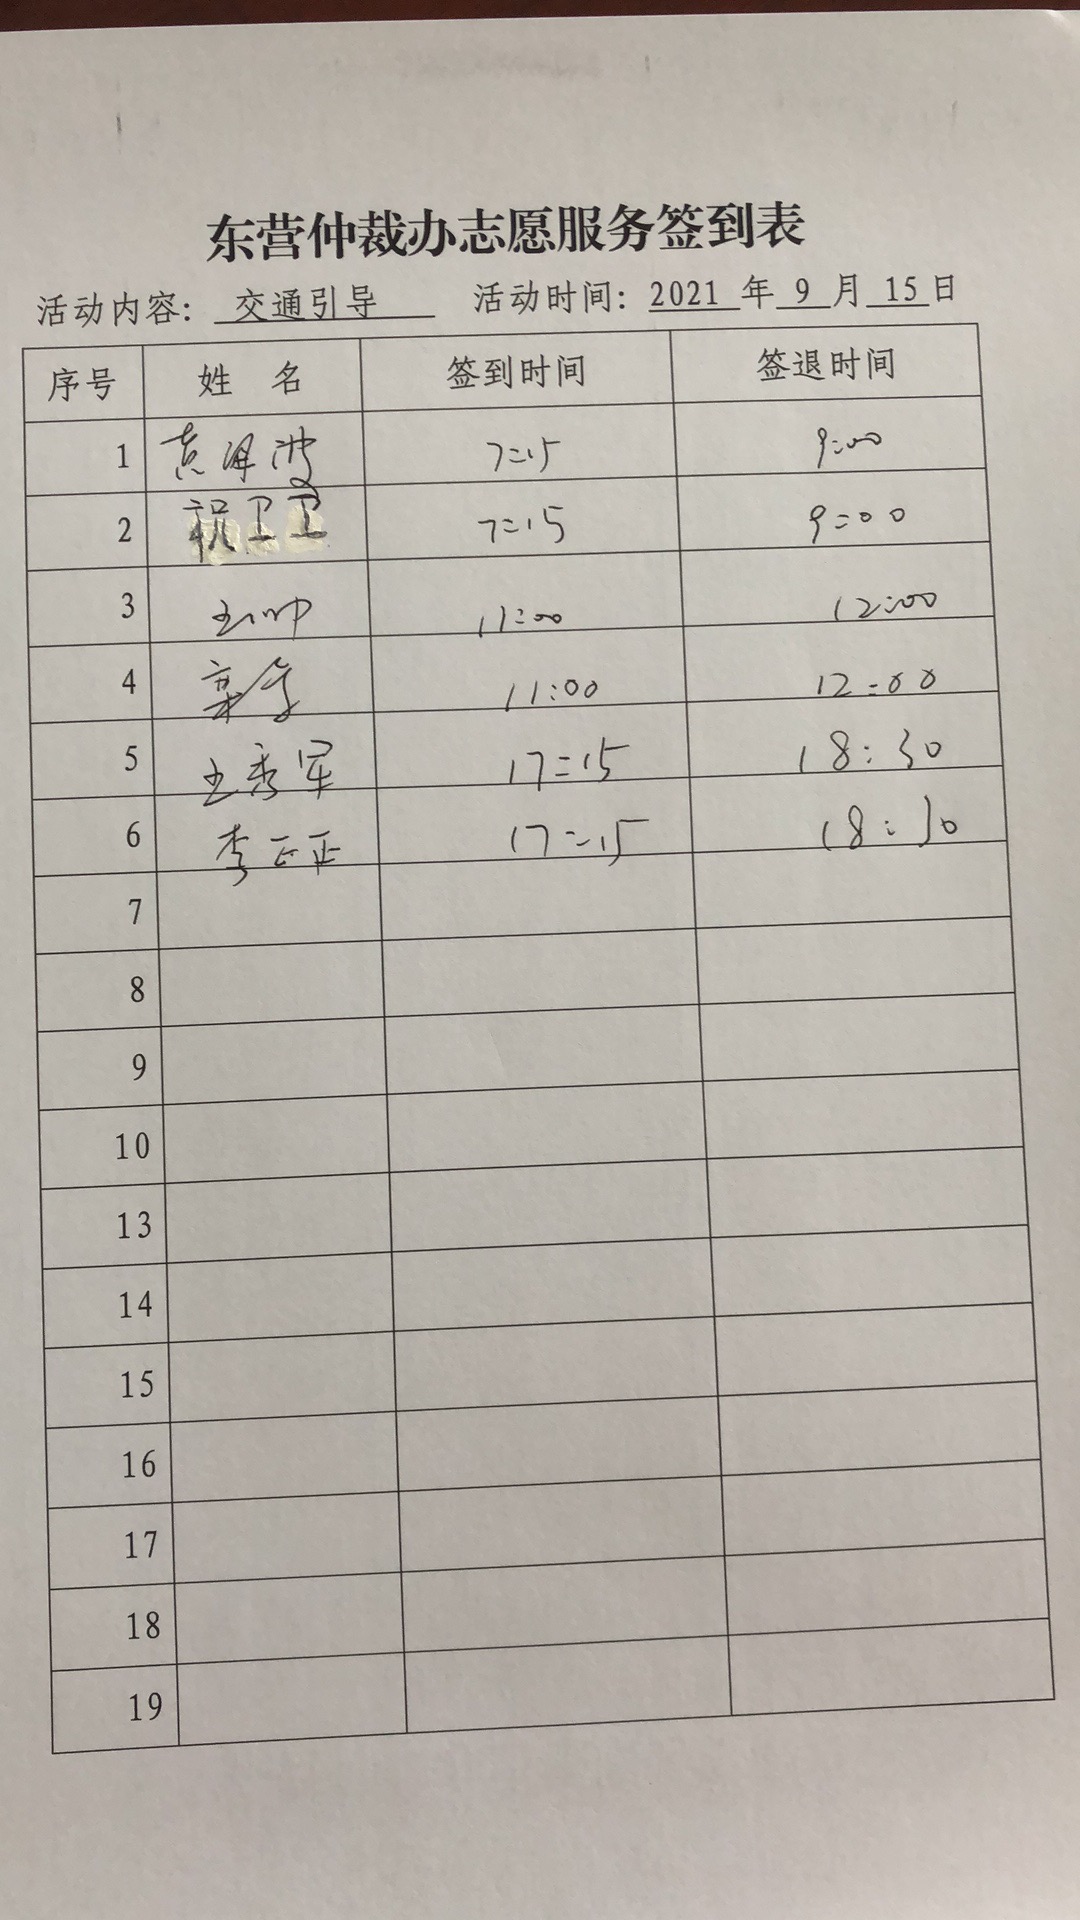 东营仲裁办志愿服务签到表
活动内容: 交通引导 活动时间: 2021 年 9 月 15 日
序号 姓 名 签到时间 签退时间
1 7:15 9:00
2 祝卫卫 7:15 9:00
3 王帅 11:00 12:00
4 11:00 12:00
5 王秀军 17:15 18:30
6 李正正 17:15 18:30
7
8
9
10
13
14
15
16
17
18
19